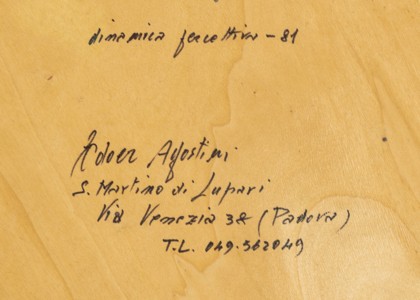 dinamica percettiva - 81
Adoer Agostini
S. Martino di Lupari
Via Venezia 38 (Padova)
T.L. 049.562049